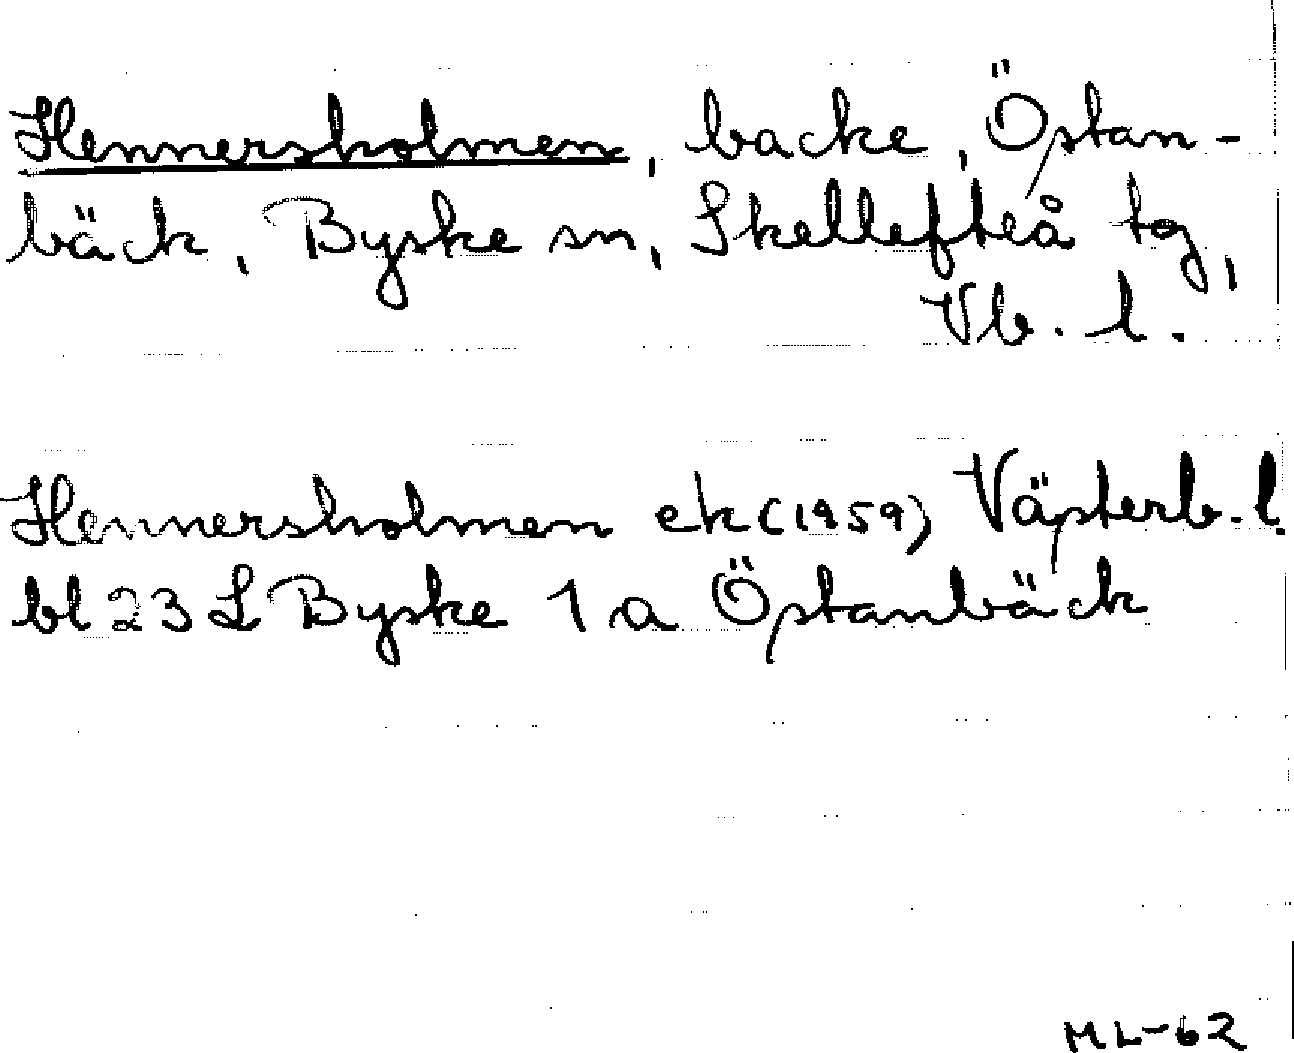 Hennersholmen, backe, Östan-
bäck, Byske sn, Skellefteå tg,
Vb. l.
Hennersholmen ek (1959) Västerb. l.
bl 23 L Byske 1 a Östanbäck
ML-62